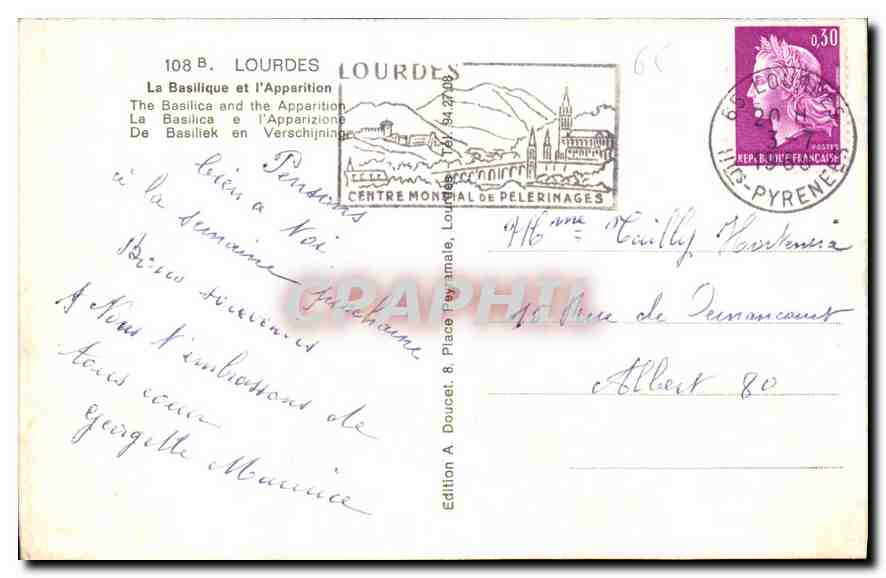 108 B. LOURDES
La Basilique et l'Apparition
The Basilica and the Apparition
La Basilica e l'Apparizione
De Basiliek en Verschijning
Pensons
bien a Noi
à la semaine prochaine
Bons souvenirs
Nous t'embrassons de
tous cœur
Georgette Maurice
Edition A Doucet. 8, Place Peyramale, Lourdes Tel. 94.27.08
LOURDES
CENTRE MONDIAL DE PELERINAGES
65
0,30
POSTES
REPUBLIQUE FRANÇAISE
65 LOURDES
20 H
3 - 7
HTES-PYRENEES
Mme Mailly Hortensia
10 Rue de Dernancourt
Albert 80
CPAPHIL